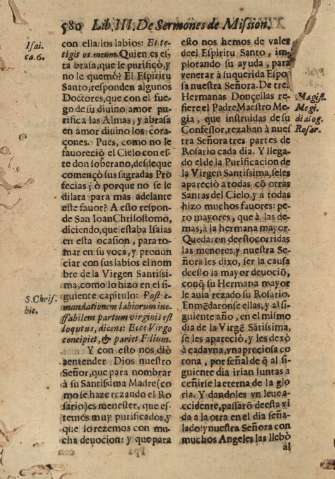 580 Lib. III. De Sermones de Mission.
Isai.
ca. 6.
con ella los labios: Et te-
tigit os meum. Quien es es-
ta brasa, que le purificò, y
no le quemò? El Espiritu
Santo, responden algunos
Doctores, que con el fue-
go de su diuino amor pu-
rifica las Almas, y abrasa
en amor diuino los cora-
çones. Pues, como no le
fauoreciò el Cielo con es-
te don soberano, desde que
començò sus sagradas Pro-
fecias; ò porque no se le
dilata para mas adelante
este fauor? A esto respon-
de San Ioan Chrisostomo,
diciendo, que estaba Isaias
en esta ocasion, para to-
mar en su voca, y pronun
ciar con sus labios el nom
bre de la Virgen Santissi-
ma, como lo hizo en el si-
guiente capitulo: Post e-
mundationem labiorum ine-
ffabilem partum virginis est
loqutus, dicens: Ecce Virgo
concipiet, & pariet Filium.
S. Chris.
hic.
Y con esto nos diò
aentender Dios nuestro
Señor, que para nombrar
à su Santissima Madre (co
mo se haze rezando el Ro-
sario) es menester, que es-
temos muy purificados, y
que lo rezemos con mu-
cha deuocion: y que para
esto nos hemos de valer
del Espiritu Santo, im-
plorando su ayuda, para
venerar à su querida Espo
sa nuestra Señora. De tres
Hermanas Donçellas re-
fiere el Padre Maestro Me-
gia, que instruidas de su
Confessor, rezaban à nues
tra Señora tres partes de
Rosario cada dia. Y llega-
do el de la Purificacion de
la Virgen Santissima, se les
apareciò a todas, cõ otras
Santas del Cielo, y a todas
hizo muchos fauores: pe-
ro mayores, que à las de-
mas, à la hermana mayor.
Quedaron desto corridas
las menores, y nuestra Se-
ñora les dixo, ser la causa
desto la mayor deuociõ,
conq̃ su Hermana mayor
le auia rezado su Rosario.
Enmẽdaronse ellas, y al si-
guiente año, en el mismo
dia de la Virgẽ Sãtissima,
se les apareciò, y les dexò
à cadavna, vna preciosa co
rona, por señal de q̃ al si-
guiente dia irian juntas a
ceñirse la eterna de la glo
ria. Y dandoles vn leue
accidente, passarõ desta vi
da a la otra en el dia seña-
lado: y nuestra Señora con
muchos Angeles las llebò
al
Magist.
Megi.
dialog.
Rosar.